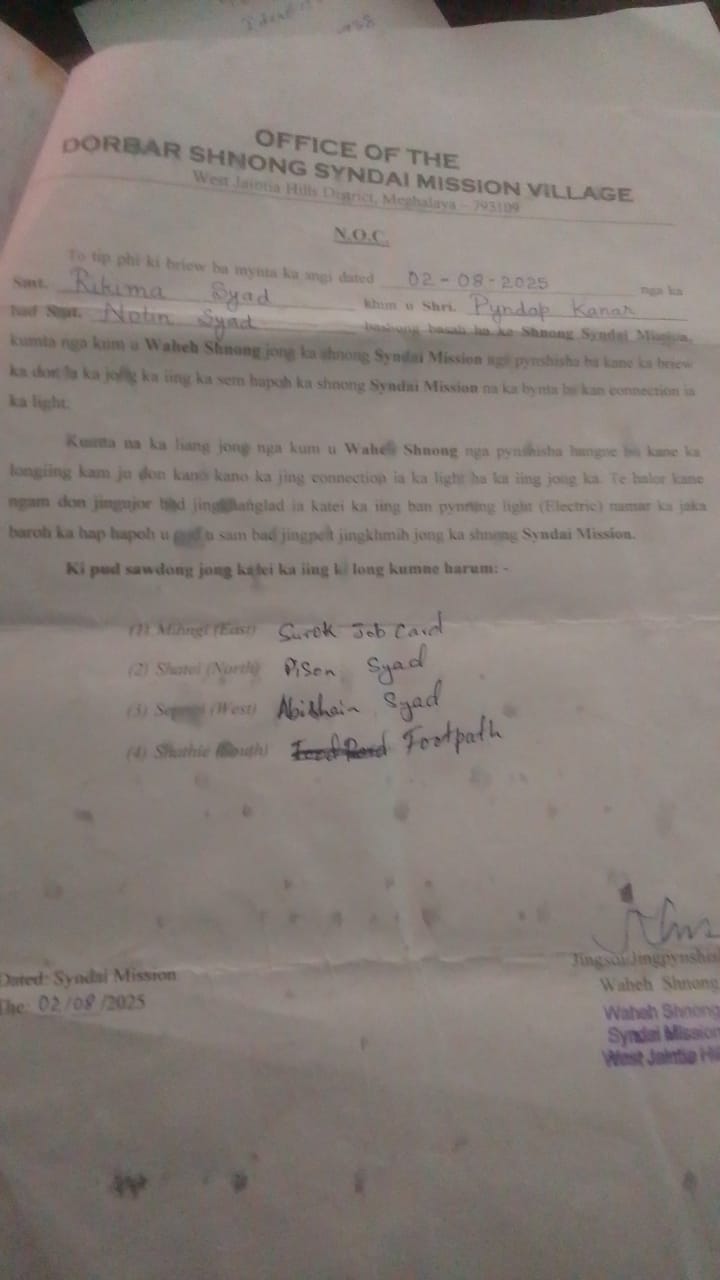 OFFICE OF THE
DORBAR SHNONG SYNDAI MISSION VILLAGE
West Jaintia Hills District, Meghalaya – 793109
N.O.C.
To tip phi ki briew ba mynta ka sngi dated 02-08-2025 nga ka
Smt. Rikima Syad khun u Shri. Pyndap Kanar
bad Smt. Notin Syad bashong basah ha ka Shnong Syndai Mission,
kumta nga kum u Waheh Shnong jong ka shnong Syndai Mission nga pynshisha ba kane ka briew
ka don la ka jong ka iing ka sem hapoh ka shnong Syndai Mission na ka bynta ba kan connection ia
ka light.
Kumta na ka liang jong nga kum u Waheh Shnong nga pynshisha hangne ba kane ka
longiing kam ju don kano kano ka jing connection ia ka light ha ka iing jong ka. Te halor kane
ngam don jingujor bad ia katei ka iing ban pynrung light (Electric) namar ka jaka
baroh ka hap hapoh u pud u sam bad jingpeit jingkhmih jong ka shnong Syndai Mission.
Ki pud sawdong jong katei ka iing ki long kumne harum: -
(1) Mihngi (East) Surok Job Card
(2) Shatei (North) Pison Syad
(3) (West) Abishain Syad
(4) Shathie (South) Footpath
Jingsoi Jingpynshis
Dated: Syndai Mission
Waheh Shnong
The: 02/08/2025
Waheh Shnong
Syndai Mission
West Jaintia Hil